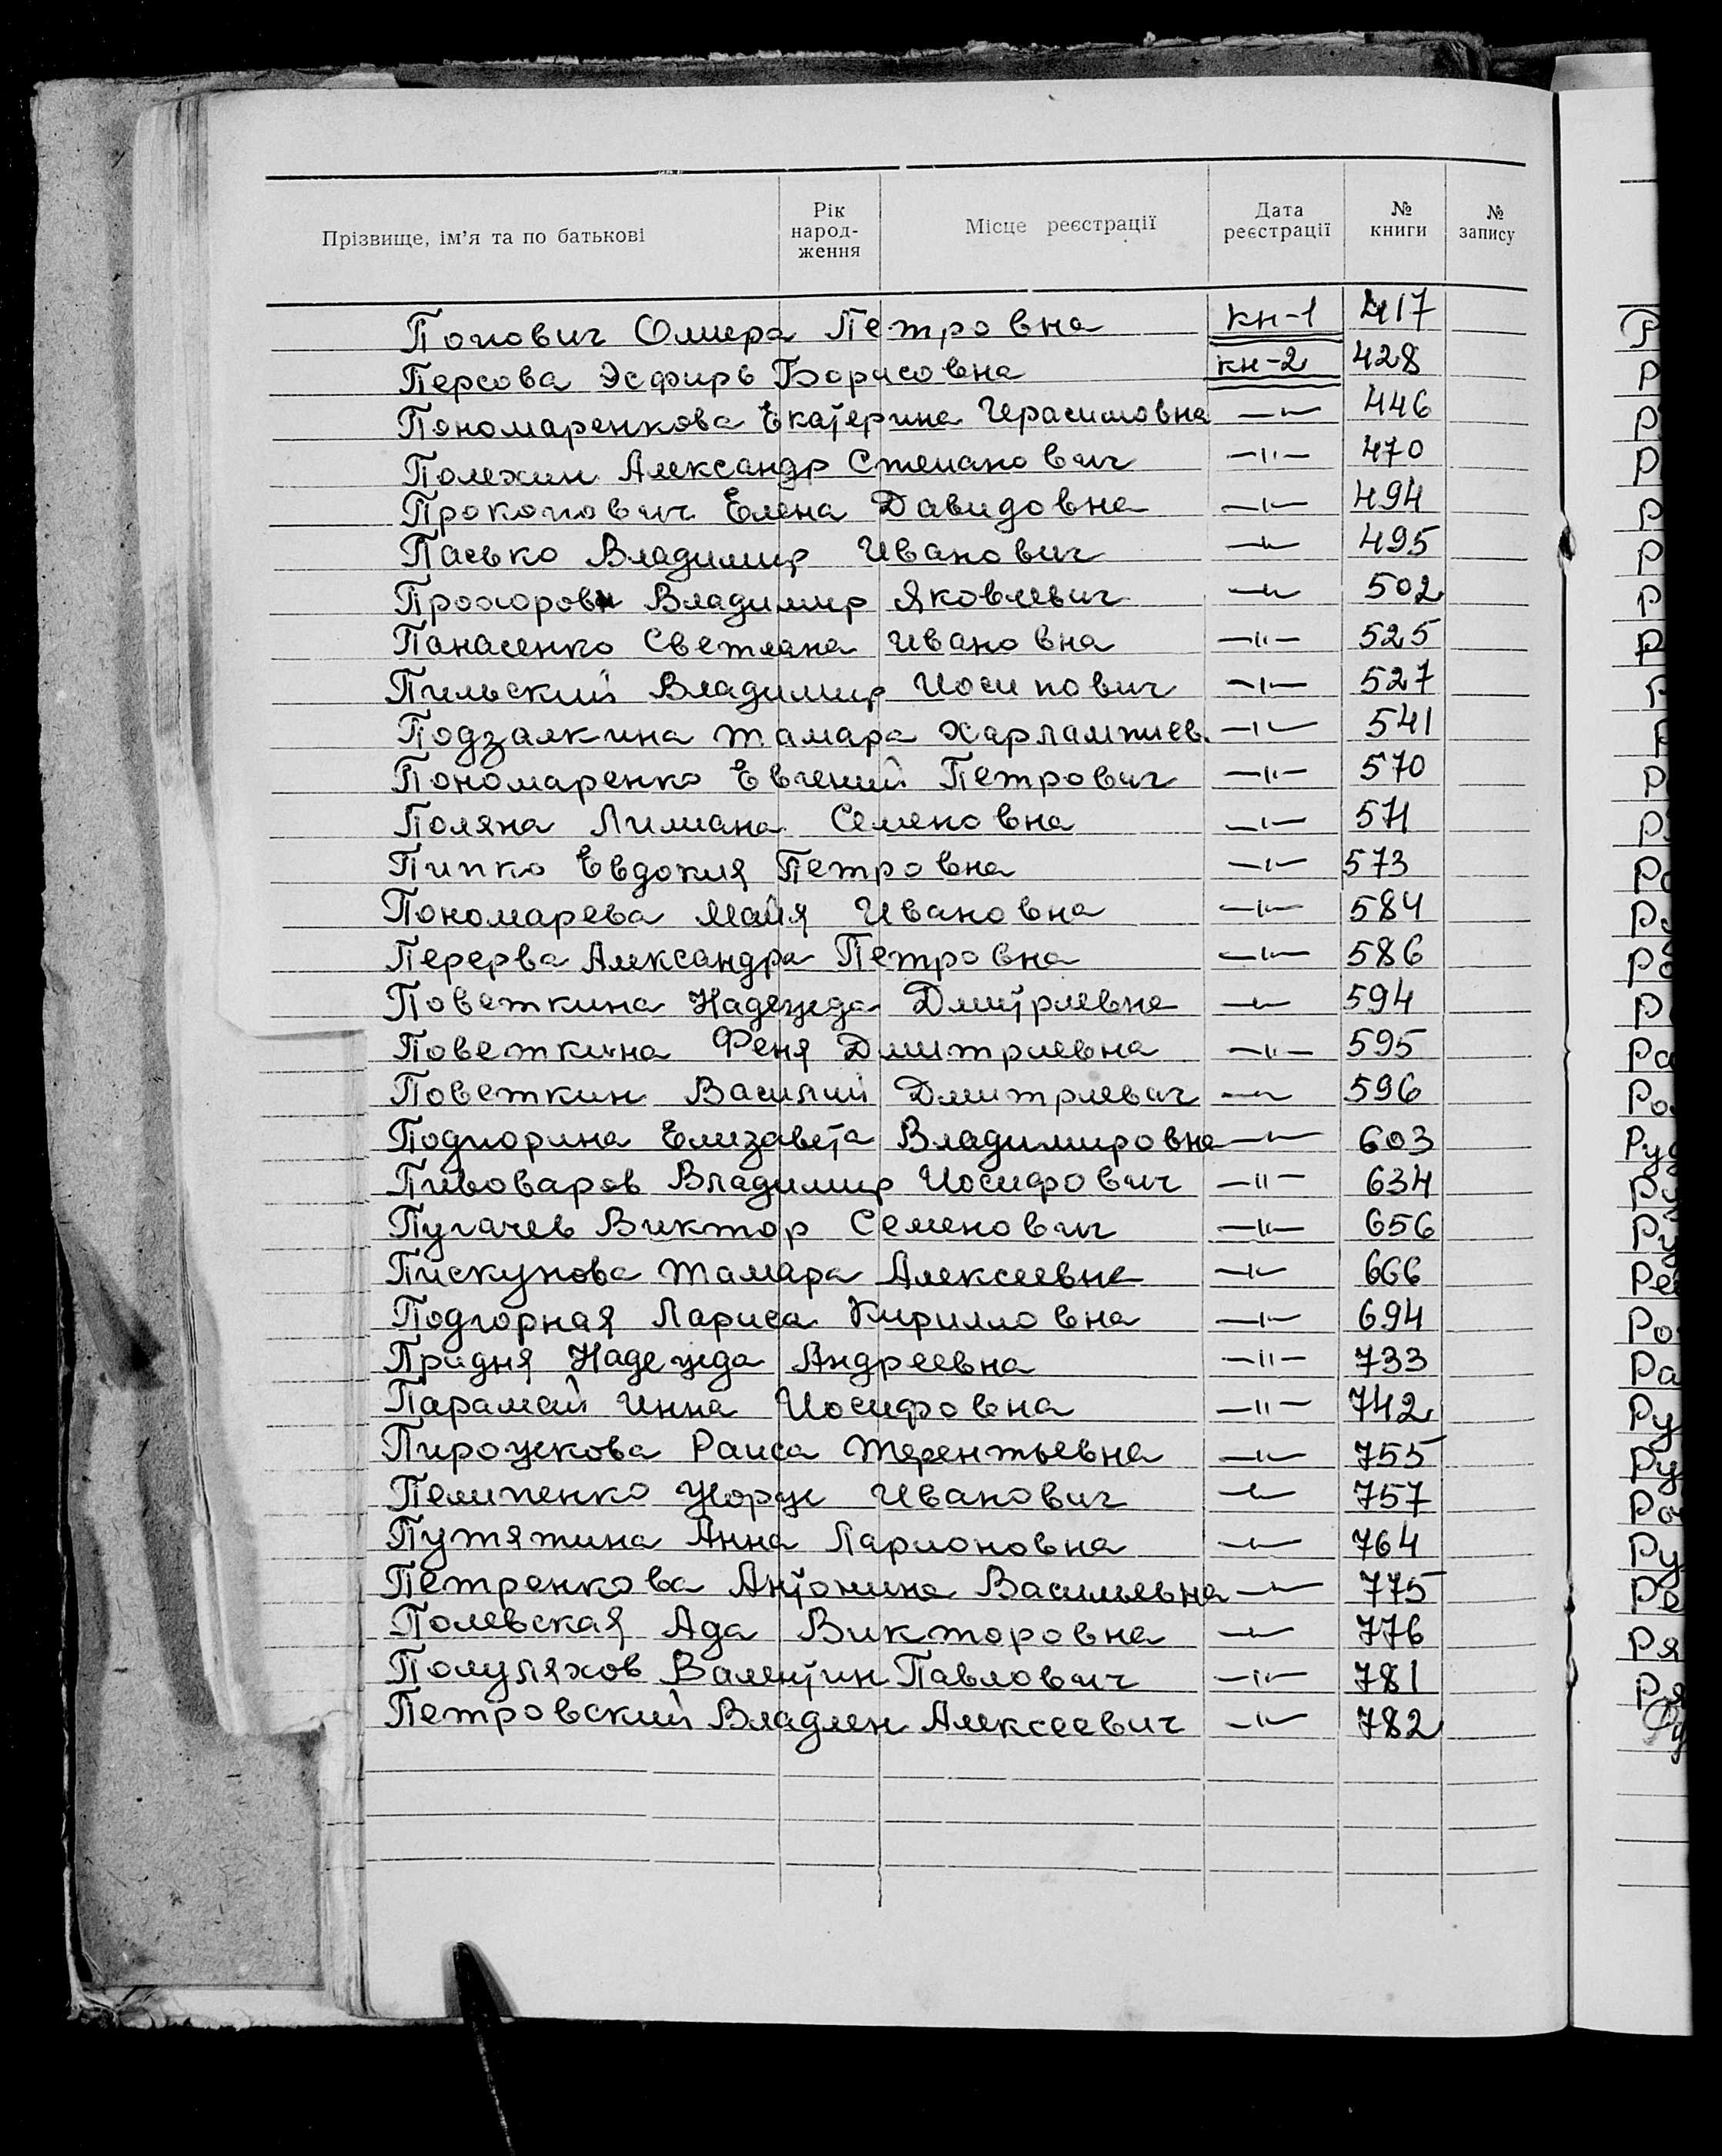 Прізвище, ім'я та по батькові Рік народ- ження Місце реєстрації Дата реєстрації № книги № запису
Попович Олмера Петровна кн-1 417
Персова Эсфирь Борисовна кн-2 428
Пономаренкова Екатерина Герасимовна —"— 446
Полехин Александр Степанович —"— 470
Прокопович Елена Давидовна —"— 494
Пасько Владимир Иванович —"— 495
Прохоров Владимир Яковлевич —"— 502
Панасенко Светлана Ивановна —"— 525
Пильский Владимир Иосипович —"— 527
Подзалкина Тамара Харлампиев. —"— 541
Пономаренко Евгений Петрович —"— 570
Поляна Лилиана Семеновна —"— 571
Пипко Евдокия Петровна —"— 573
Пономарева Майя Ивановна —"— 584
Перерва Александра Петровна —"— 586
Поветкина Надежда Дмитриевна —"— 594
Поветкина Феня Дмитриевна —"— 595
Поветкин Василий Дмитриевич —"— 596
Подгорина Елизавета Владимировна —"— 603
Пивоваров Владимир Иосифович —"— 634
Пугачев Виктор Семенович —"— 656
Пискунова Тамара Алексеевна —"— 666
Подгорная Лариса Кирилловна —"— 694
Придня Надежда Андреевна —"— 733
Парамей Инна Иосифовна —"— 742
Пирожкова Раиса Терентьевна —"— 755
Пелипенко Жорж Иванович —"— 757
Путятина Анна Ларионовна —"— 764
Петренкова Антонина Васильевна —"— 775
Полевская Ада Викторовна —"— 776
Полуляхов Валентин Павлович —"— 781
Петровский Владлен Алексеевич —"— 782